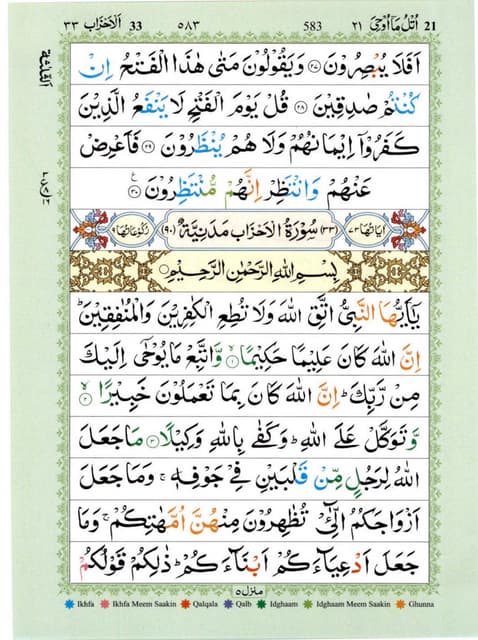 ٣٣ اَلۡاَحۡزَاب 33 ٥٨٣ 583 اُتۡلُ مَاۤ اُوۡحِیَ ٢١ 21
اَفَلَا یُبۡصِرُوۡنَ ﴿۲۷﴾ وَیَقُوۡلُوۡنَ مَتٰی هٰذَا الۡفَتۡحُ اِنۡ
کُنۡتُمۡ صٰدِقِیۡنَ ﴿۲۸﴾ قُلۡ یَوۡمَ الۡفَتۡحِ لَا یَنۡفَعُ الَّذِیۡنَ
کَفَرُوۡۤا اِیۡمَانُهُمۡ وَلَا هُمۡ یُنۡظَرُوۡنَ ﴿۲۹﴾ فَاَعۡرِضۡ
عَنۡهُمۡ وَانۡتَظِرۡ اِنَّهُمۡ مُّنۡتَظِرُوۡنَ ﴿۳۰﴾
اٰیَاتُهَا ٧٣ (٣٣) سُوۡرَةُ الۡاَحۡزَابِ مَدَنِیَّةٌ (٩٠) رُکُوۡعَاتُهَا ٩
بِسۡمِ اللّٰهِ الرَّحۡمٰنِ الرَّحِیۡمِ
یٰۤاَیُّهَا النَّبِیُّ اتَّقِ اللّٰهَ وَلَا تُطِعِ الۡکٰفِرِیۡنَ وَالۡمُنٰفِقِیۡنَ ؕ
اِنَّ اللّٰهَ کَانَ عَلِیۡمًا حَکِیۡمًا ﴿۱﴾ وَّاتَّبِعۡ مَا یُوۡحٰۤی اِلَیۡکَ
مِنۡ رَّبِّکَ ؕ اِنَّ اللّٰهَ کَانَ بِمَا تَعۡمَلُوۡنَ خَبِیۡرًا ﴿۲﴾
وَّتَوَکَّلۡ عَلَی اللّٰهِ ؕ وَکَفٰی بِاللّٰهِ وَکِیۡلًا ﴿۳﴾ مَا جَعَلَ
اللّٰهُ لِرَجُلٍ مِّنۡ قَلۡبَیۡنِ فِیۡ جَوۡفِهٖ ۚ وَمَا جَعَلَ
اَزۡوَاجَکُمُ الّٰٓـِٔیۡ تُظٰهِرُوۡنَ مِنۡهُنَّ اُمَّهٰتِکُمۡ ۚ وَمَا
جَعَلَ اَدۡعِیَآءَکُمۡ اَبۡنَآءَکُمۡ ؕ ذٰلِکُمۡ قَوۡلُکُمۡ
منزل ٥
Ikhfa Ikhfa Meem Saakin Qalqala Qalb Idghaam Idghaam Meem Saakin Ghunna